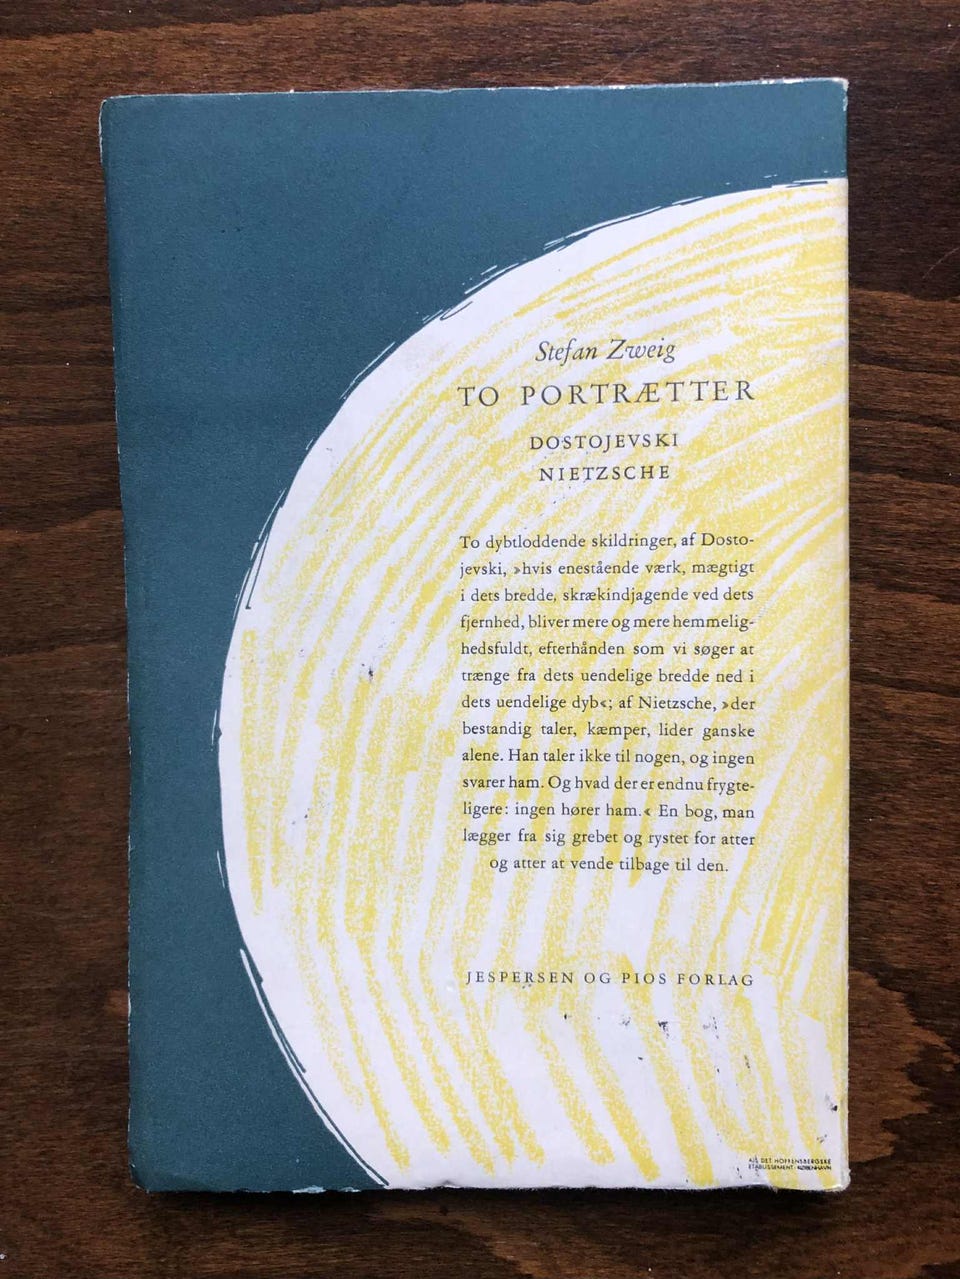 Stefan Zweig
TO PORTRÆTTER
DOSTOJEVSKI
NIETZSCHE
To dybtloddende skildringer, af Dosto-
jevski, »hvis enestående værk, mægtigt
i dets bredde, skrækindjagende ved dets
fjernhed, bliver mere og mere hemmelig-
hedsfuldt, efterhånden som vi søger at
trænge fra dets uendelige bredde ned i
dets uendelige dyb«; af Nietzsche, »der
bestandig taler, kæmper, lider ganske
alene. Han taler ikke til nogen, og ingen
svarer ham. Og hvad der er endnu frygte-
ligere: ingen hører ham.« En bog, man
lægger fra sig grebet og rystet for atter
og atter at vende tilbage til den.
JESPERSEN OG PIOS FORLAG
A/S DET HOFFENSBERGSKE
ETABLISSEMENT · KØBENHAVN